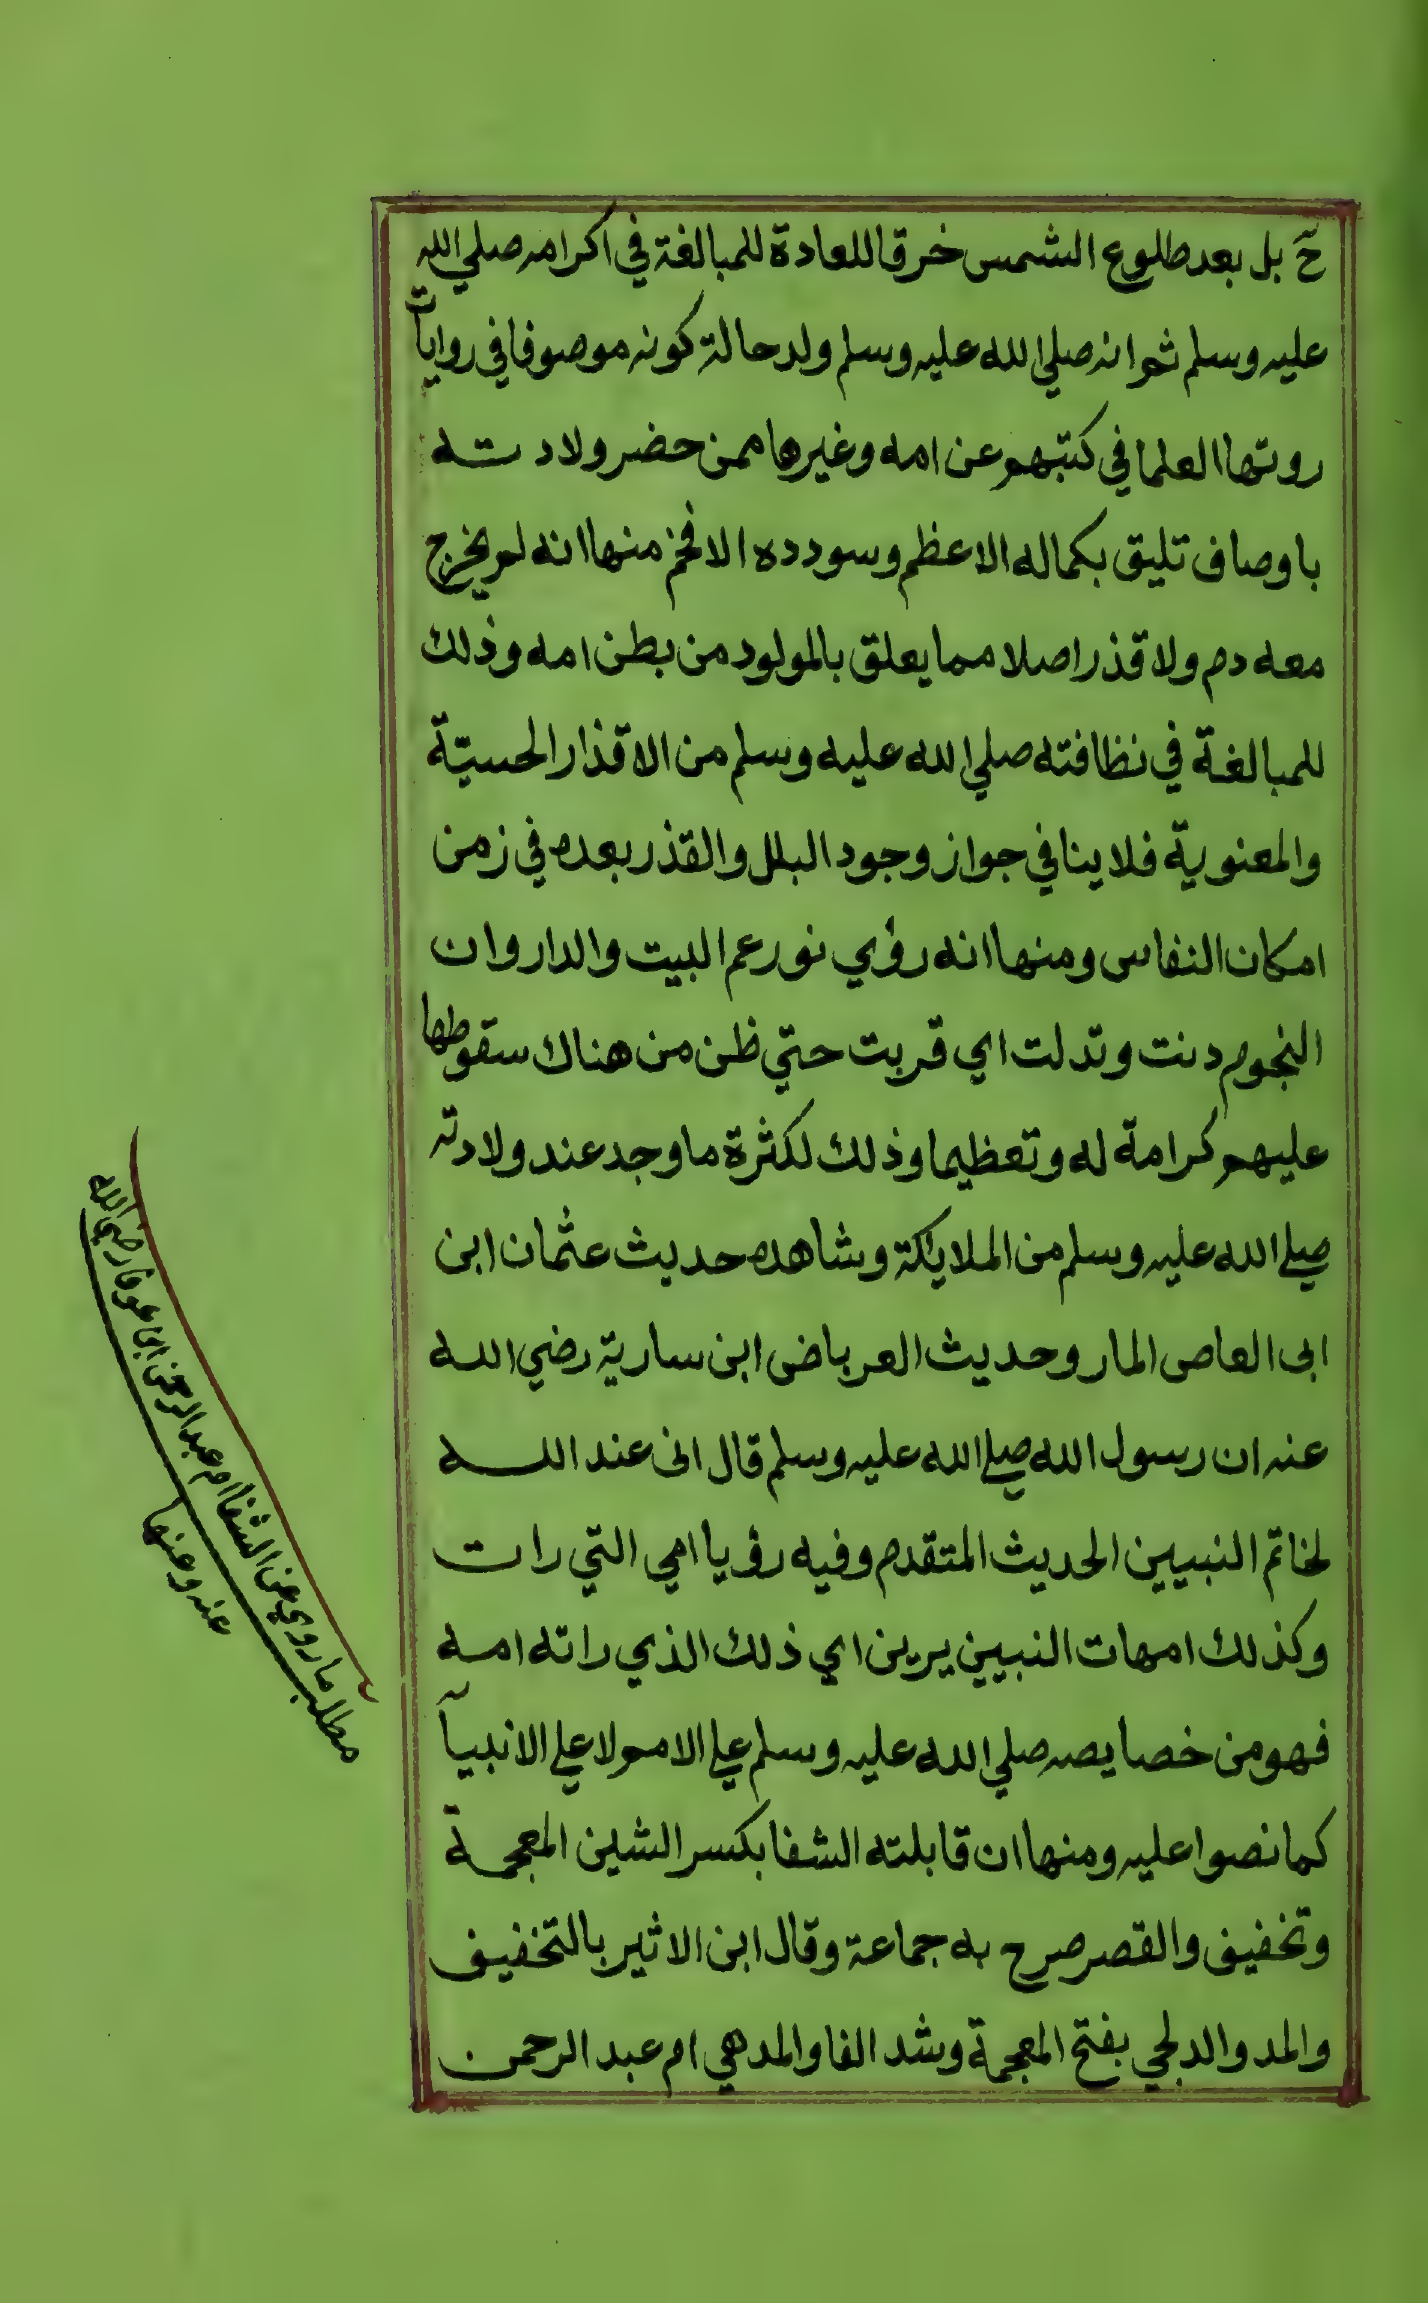 ح بل بعد طلوع الشمس خرقا للعادة للمبالغة في اكرامه صلي الله
عليه وسلم ثم انه صلي الله عليه وسلم ولد حالة كونه موصوفا في روايات
روتها العلما في كتبهم عن امه وغيرها ممن حضر ولادته
باوصاف تليق بكماله الاعظم وسودده الافخم منها انه لم يخرج
معه دم ولا قذر اصلا مما يعلق بالمولود من بطن امه وذلك
للمبالغة في نظافته صلي الله عليه وسلم من الاقذار الحسيّة
والمعنوية فلا ينافي جواز وجود البلل والقذر بعده في زمن
امكان النفاس ومنها انه رؤي نور عم البيت والدار وان
النجوم دنت وتدلت اي قربت حتي ظن من هناك سقوطها
عليهم كرامة له وتعظيما وذلك لكثرة ما وجد عند ولادته
صلي الله عليه وسلم من الملايكة وشاهده حديث عثمان ابن
ابى العاص المار وحديث العرباض ابن سارية رضي الله
عنه ان رسول الله صلي الله عليه وسلم قال انى عند الله
لخاتم النبيين الحديث المتقدم وفيه رؤيا امي التي رات
وكذلك امهات النبيين يرين اي ذلك الذي راته امه
فهو من خصايصه صلي الله عليه وسلم علي الامم لا علي الانبيآ
كما نصوا عليه ومنها ان قابلته الشفا بكسر الشين المعجمة
وتخفيف والقصر صرح به جماعة وقال ابن الاثير بالتخفيف
والمد والدلجي بفتح المعجمة وشد الفا والمد هي ام عبد الرحمن
مطلب ما روي عن الشفا ام عبد الرحمن ابن عوف رضي الله
عنه وعنها